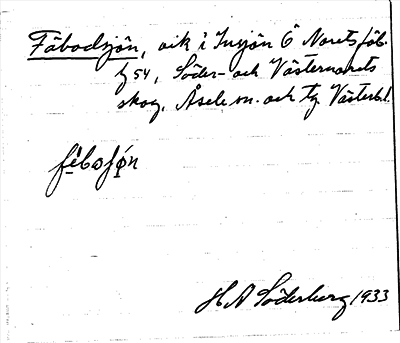 Fäbodsjön, vik i Insjön Ö Norets fäb.
h 54, Söder- och Västernorets
skog, Åsele sn. och tg Västerb. l.
fèbosjón
H A Söderberg 1933